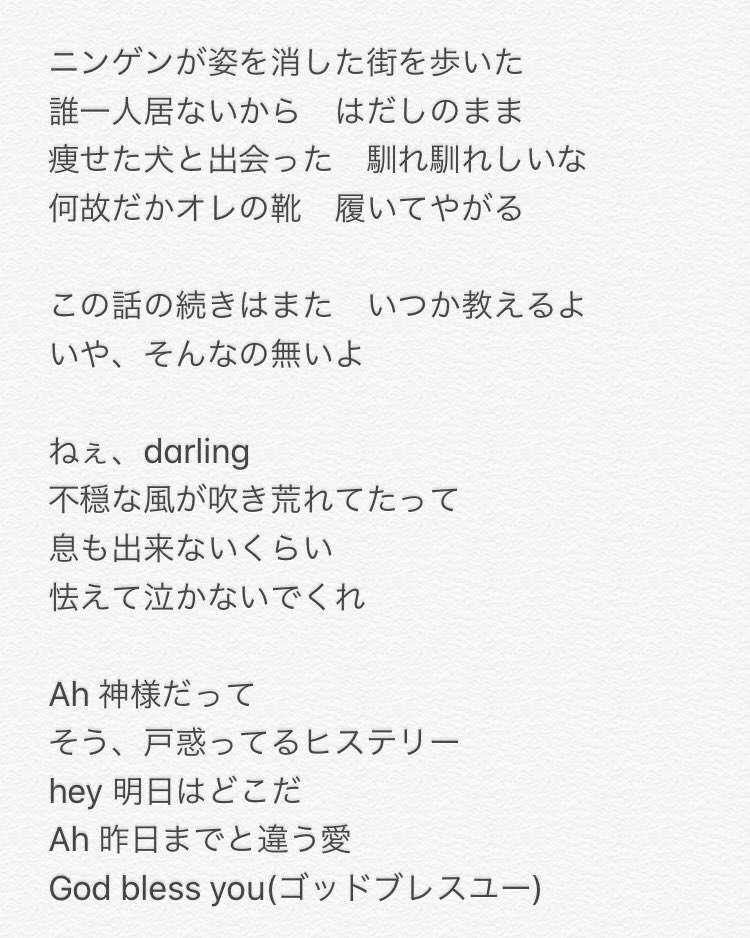 ニンゲンが姿を消した街を歩いた
誰一人居ないから　はだしのまま
痩せた犬と出会った　馴れ馴れしいな
何故だかオレの靴　履いてやがる
この話の続きはまた　いつか教えるよ
いや、そんなの無いよ
ねぇ、darling
不穏な風が吹き荒れてたって
息も出来ないくらい
怯えて泣かないでくれ
Ah 神様だって
そう、戸惑ってるヒステリー
hey 明日はどこだ
Ah 昨日までと違う愛
God bless you(ゴッドブレスユー)